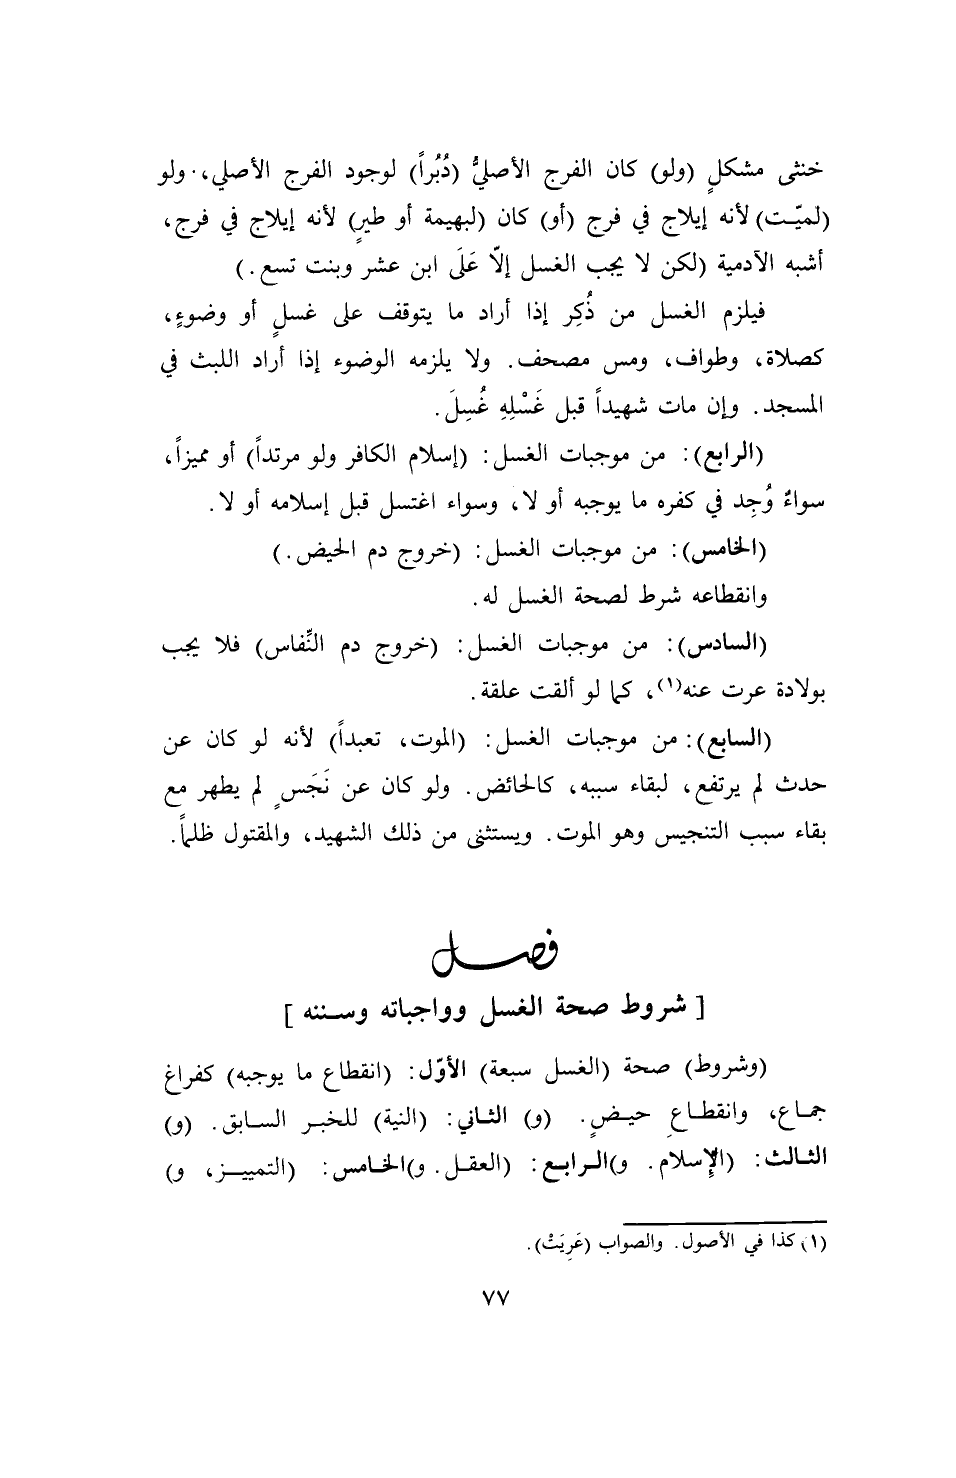 خنثى مشكلٍ (ولو) كان الفرج الأصليُّ (دُبُراً) لوجود الفرج الأصلي، ولو
(لميّت) لأنه إيلاج في فرج (أو) كان (لبهيمة أو طيرٍ) لأنه إيلاج في فرج،
أشبه الآدمية (لكن لا يجب الغسل إلاّ عَلَى ابن عشر وبنت تسع.)
فيلزم الغسل من ذُكِر إذا أراد ما يتوقف على غسلٍ أو وضوءٍ،
كصلاة، وطواف، ومس مصحف. ولا يلزمه الوضوء إذا أراد اللبث في
المسجد. وإن مات شهيداً قبل غَسْلِهِ غُسِلَ.
(الرابع): من موجبات الغسل: (إسلام الكافر ولو مرتداً) أو مميزاً،
سواءٌ وُجِد في كفره ما يوجبه أو لا، وسواء اغتسل قبل إسلامه أو لا.
(الخامس): من موجبات الغسل: (خروج دم الحيض.)
وانقطاعه شرط لصحة الغسل له.
(السادس): من موجبات الغسل: (خروج دم النِّفاس) فلا يجب
بولادة عرت عنه(١)، كما لو ألقت علقة.
(السابع): من موجبات الغسل: (الموت، تعبداً) لأنه لو كان عن
حدث لم يرتفع، لبقاء سببه، كالحائض. ولو كان عن نَجَسٍ لم يطهر مع
بقاء سبب التنجيس وهو الموت. ويستثنى من ذلك الشهيد، والمقتول ظلماً.
فصل
[ شروط صحة الغسل وواجباته وسننه ]
(وشروط) صحة (الغسل سبعة) الأوّل: (انقطاع ما يوجبه) كفراغ
جماع، وانقطاعِ حيضٍ. (و) الثاني: (النية) للخبر السابق. (و)
الثالث: (الإسلام. و)الرابع: (العقل. و)الخامس: (التمييز، و)
(١) كذا في الأصول. والصواب (عَرِيَتْ).
٧٧